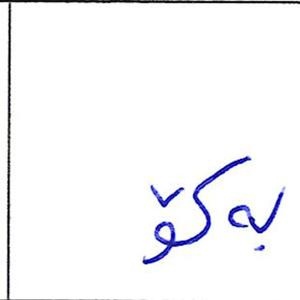 بە کۆ